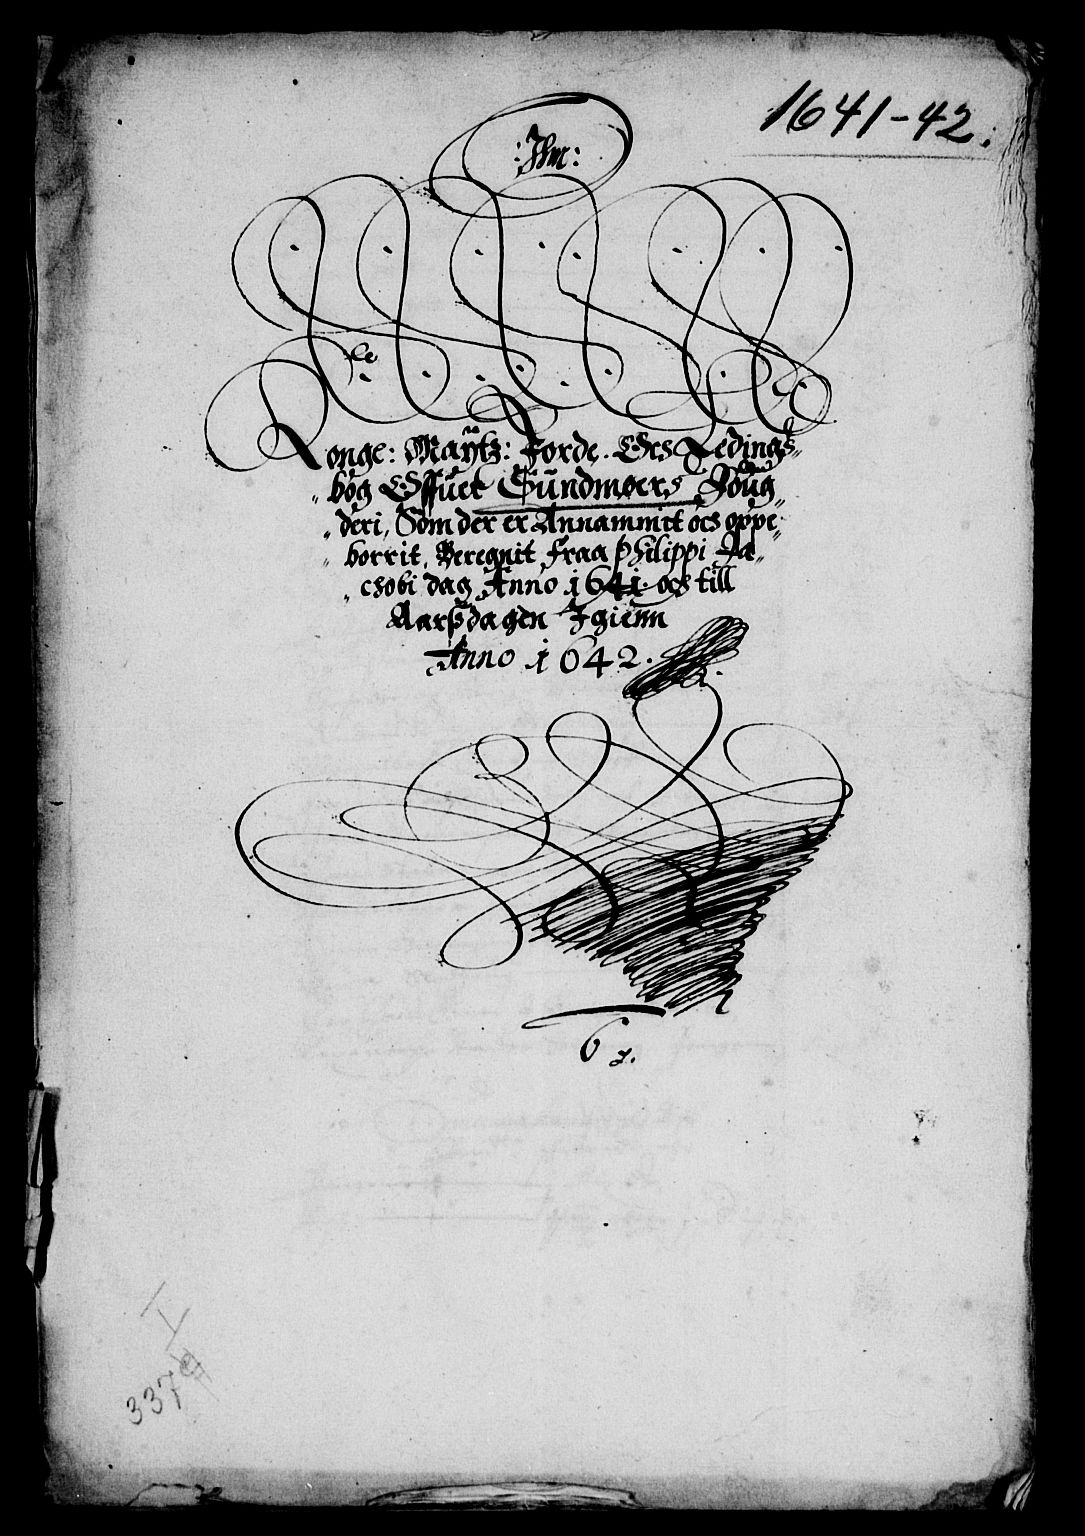 1641-42.
:Jhm:
Konge: Maÿtz: Jorde. Ocs Ledings„
„bog Offuer Sundmøers Foug„
„deri, Som der er Annammitt ocs oppe„
„borrit, Beregnit fraa Philippi Ja„
„csobi dag Anno 1641. ocs till
Aarsdagen Igienn
Anno 1642.
6
337